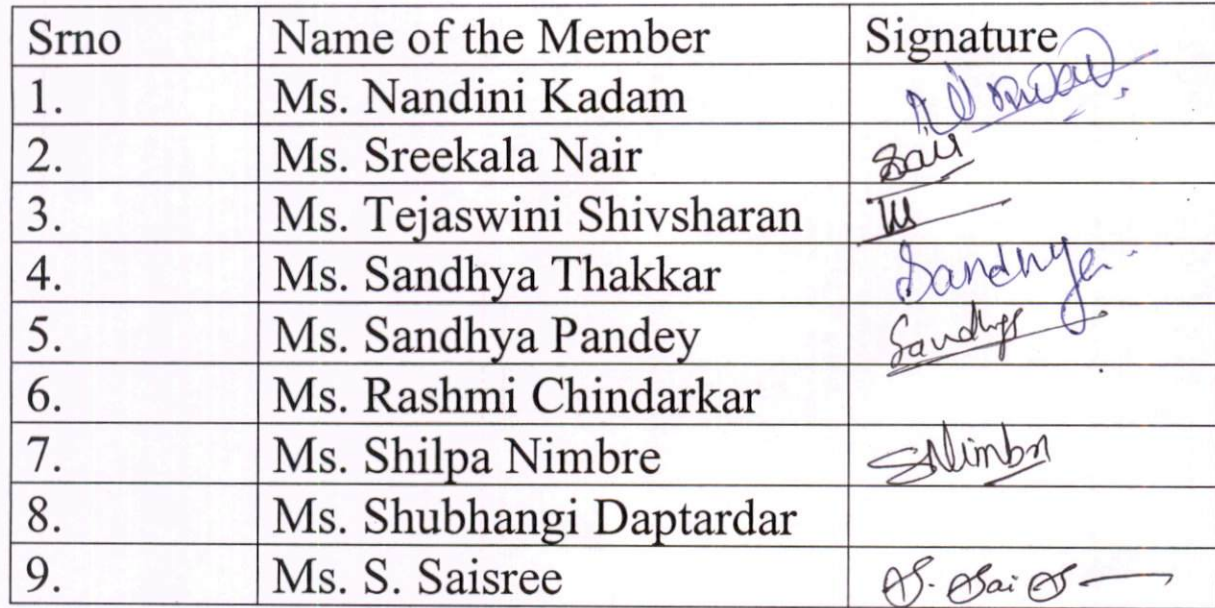 Srno Name of the Member Signature
1. Ms. Nandini Kadam
2. Ms. Sreekala Nair
3. Ms. Tejaswini Shivsharan
4. Ms. Sandhya Thakkar Sandhya
5. Ms. Sandhya Pandey Sandhya
6. Ms. Rashmi Chindarkar
7. Ms. Shilpa Nimbre SNimbre
8. Ms. Shubhangi Daptardar
9. Ms. S. Saisree S. Sai S